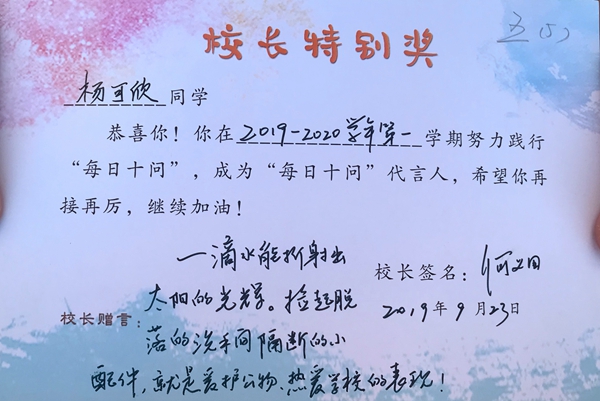 校长特别奖
五(5)
杨可欣同学
恭喜你！你在2019-2020学年第一学期努力践行
“每日十问”，成为“每日十问”代言人，希望你再
接再厉，继续加油！
一滴水能折射出
校长签名：何
太阳的光辉。捡起脱
2019年9月23日
校长赠言：
落的洗手间隔断的小
配件，就是爱护公物、热爱学校的表现！